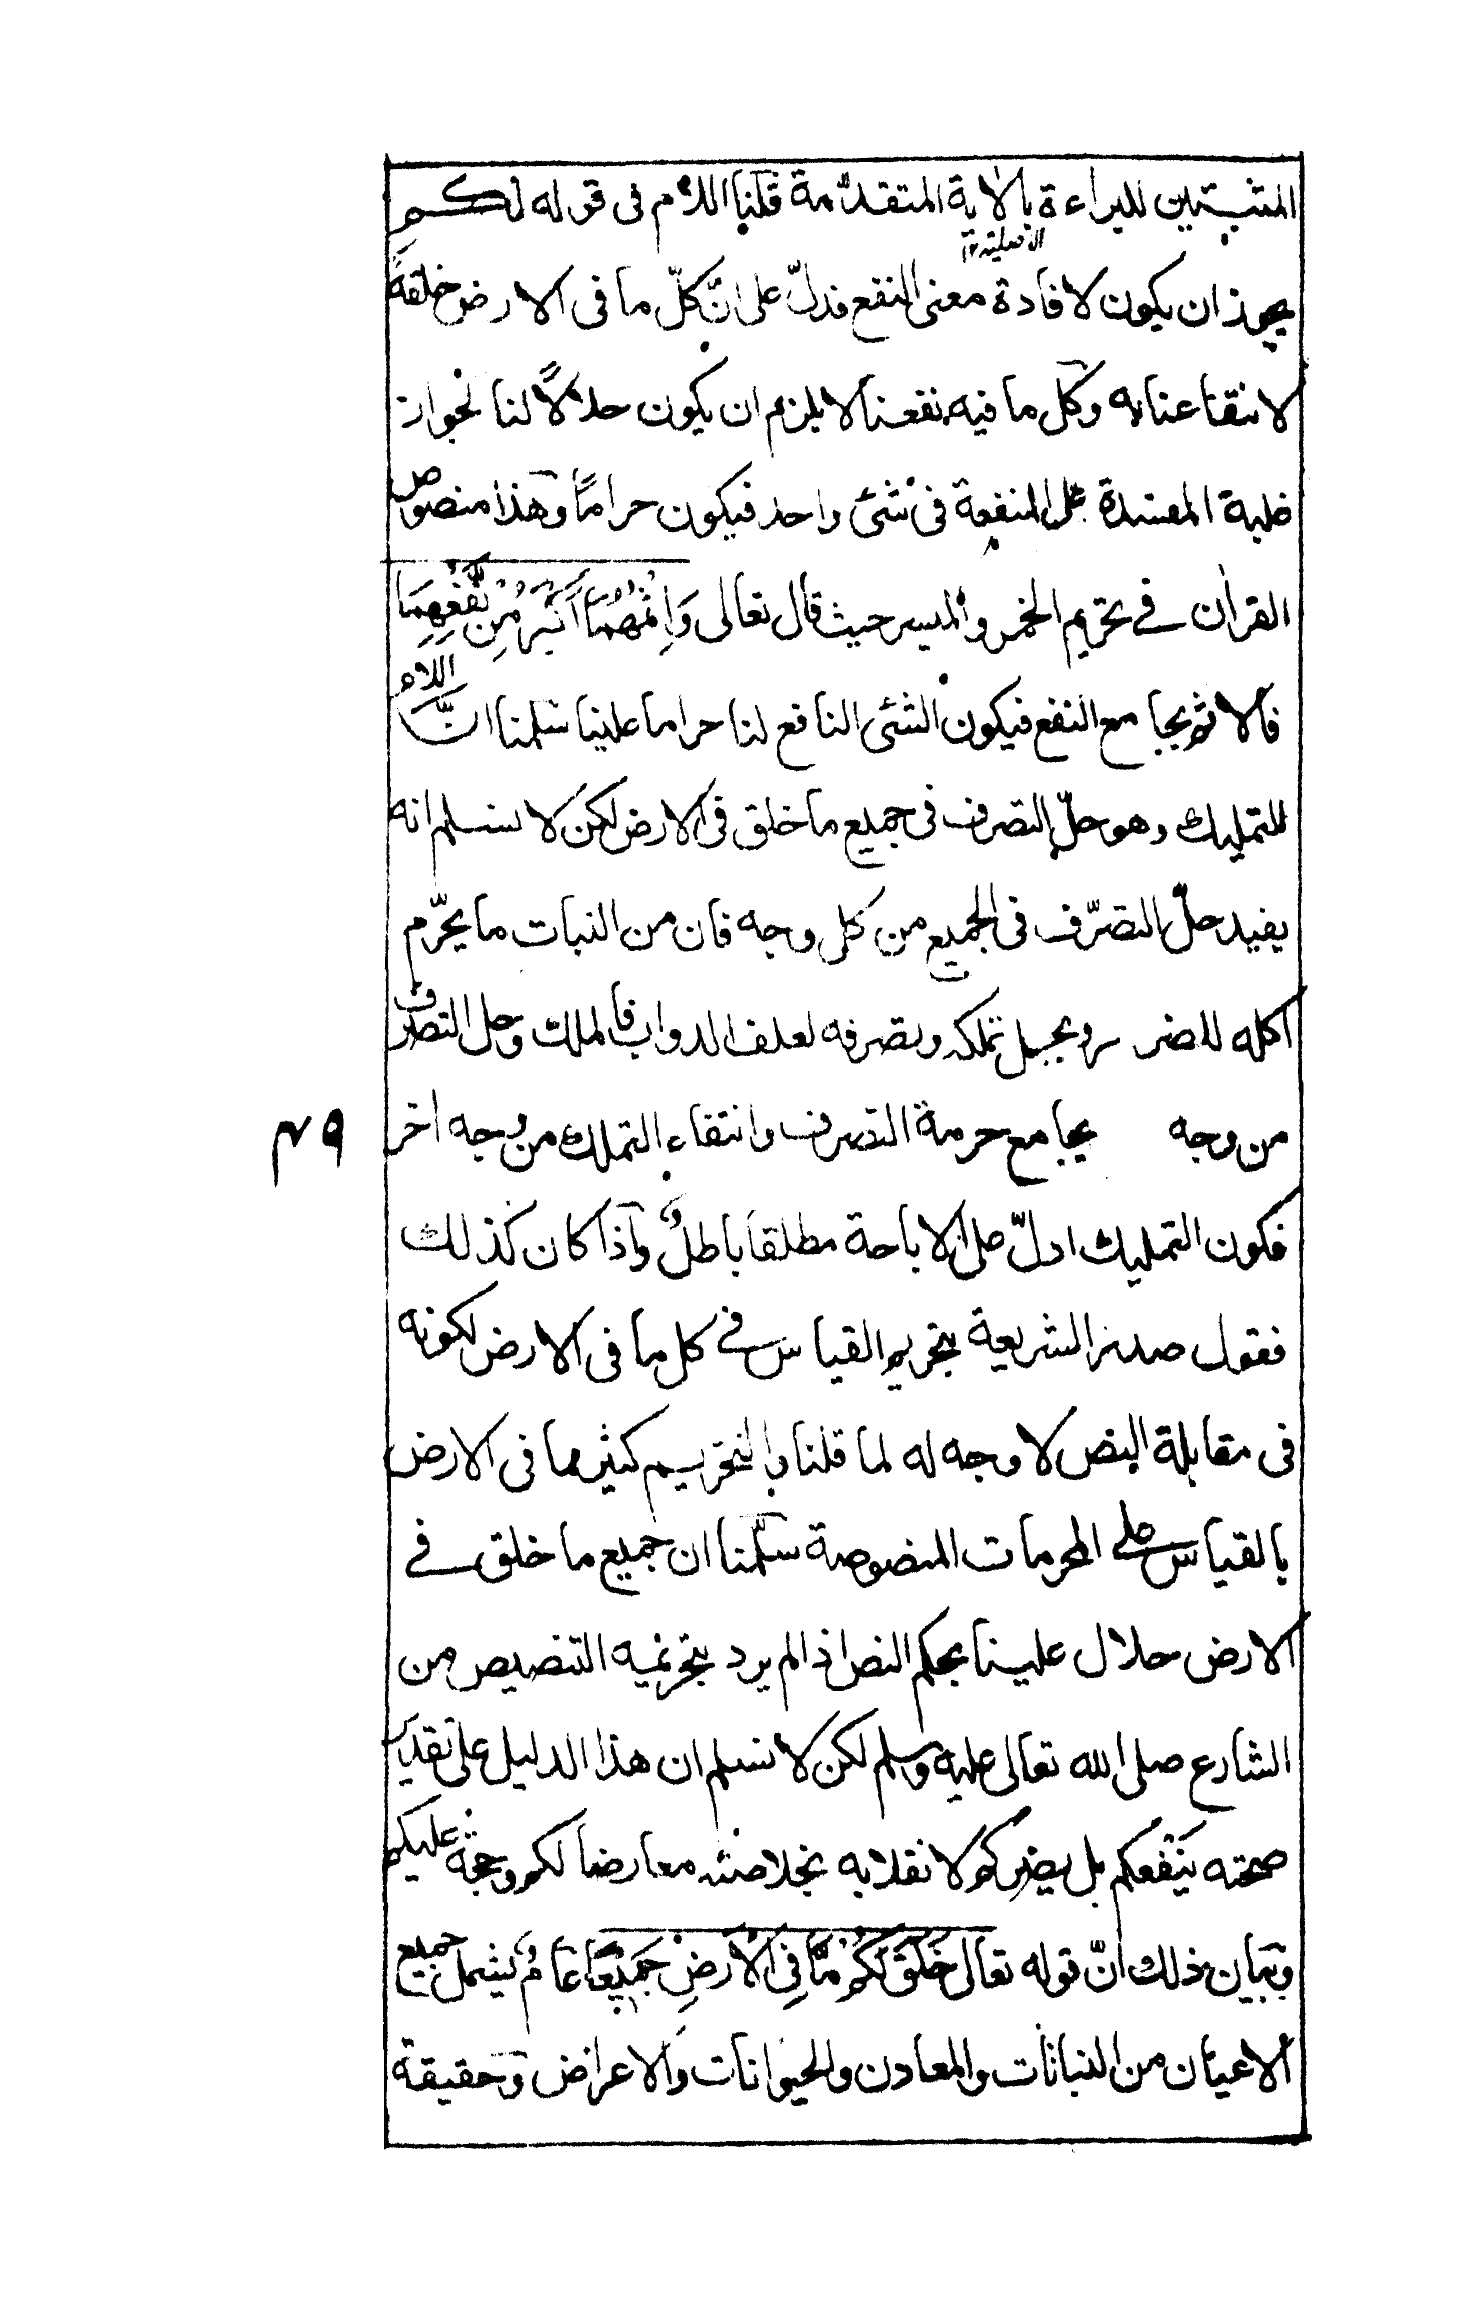 المثبتين للبراءة بالاية المتقدّمة قلنا اللام فى قوله لكم
الاصلية ١٢
يجوز ان يكون لافادة معنى النفع فدلّ على انّ كلّ ما فى الارض خلقةً
لانتفاعنا به وكل ما فيه نفعنا لا يلزم ان يكون حلالاً لنا لجواز
غلبة المفسدة على المنفعة فى شئ واحد فيكون حراماً وهذا منصوص
القران فى تحريم الخمر والميسر حيث قال تعالى وَاِثْمُهُمَا اَكْبَرُ مِنْ نَّفْعِهِمَا
فالاثم يجامع النفع فيكون الشئ النافع لنا حراما علينا سلمنا انّ اللام
للتمليك وهو حلّ التصرف فى جميع ما خلق فى الارض لكن لا نسلم انه
يفيد حلّ التصرّف فى الجميع من كل وجه فان من النبات ما يحرّم
اكله للضرر ويحل تملكه وتصرفه لعلف الدواب فالملك وحل التصرف
من وجه يجامع حرمة التصرف وانتفاء التملك من وجه اخر
٤٩
فكون التمليك ادلّ على الاباحة مطلقا باطلٌ واذا كان كذلك
فقول صدر الشريعة بتحريم القياس فى كل ما فى الارض لكونه
فى مقابلة النص لا وجه له لما قلنا بالتحريم كثير مما فى الارض
بالقياس على المحرمات المنصوصة سلّمنا ان جميع ما خلق فى
الارض حلال علينا بحكم النص اذا لم يرد بتحريمه التنصيص من
الشارع صلى الله تعالى عليه وسلم لكن لا نسلم ان هذا الدليل على تقدير
صحته ينفعكم بل يضركم لانقلابه بخلاصته معارضا لكم وحجة عليكم
وبيان ذلك انّ قوله تعالى خَلَقَ لَكُمْ مَّا فِى الْاَرْضِ جَمِيْعًا عَامٌ يشمل جميع
الاعيان من النباتات والمعادن والحيوانات والاعراض وحقيقة